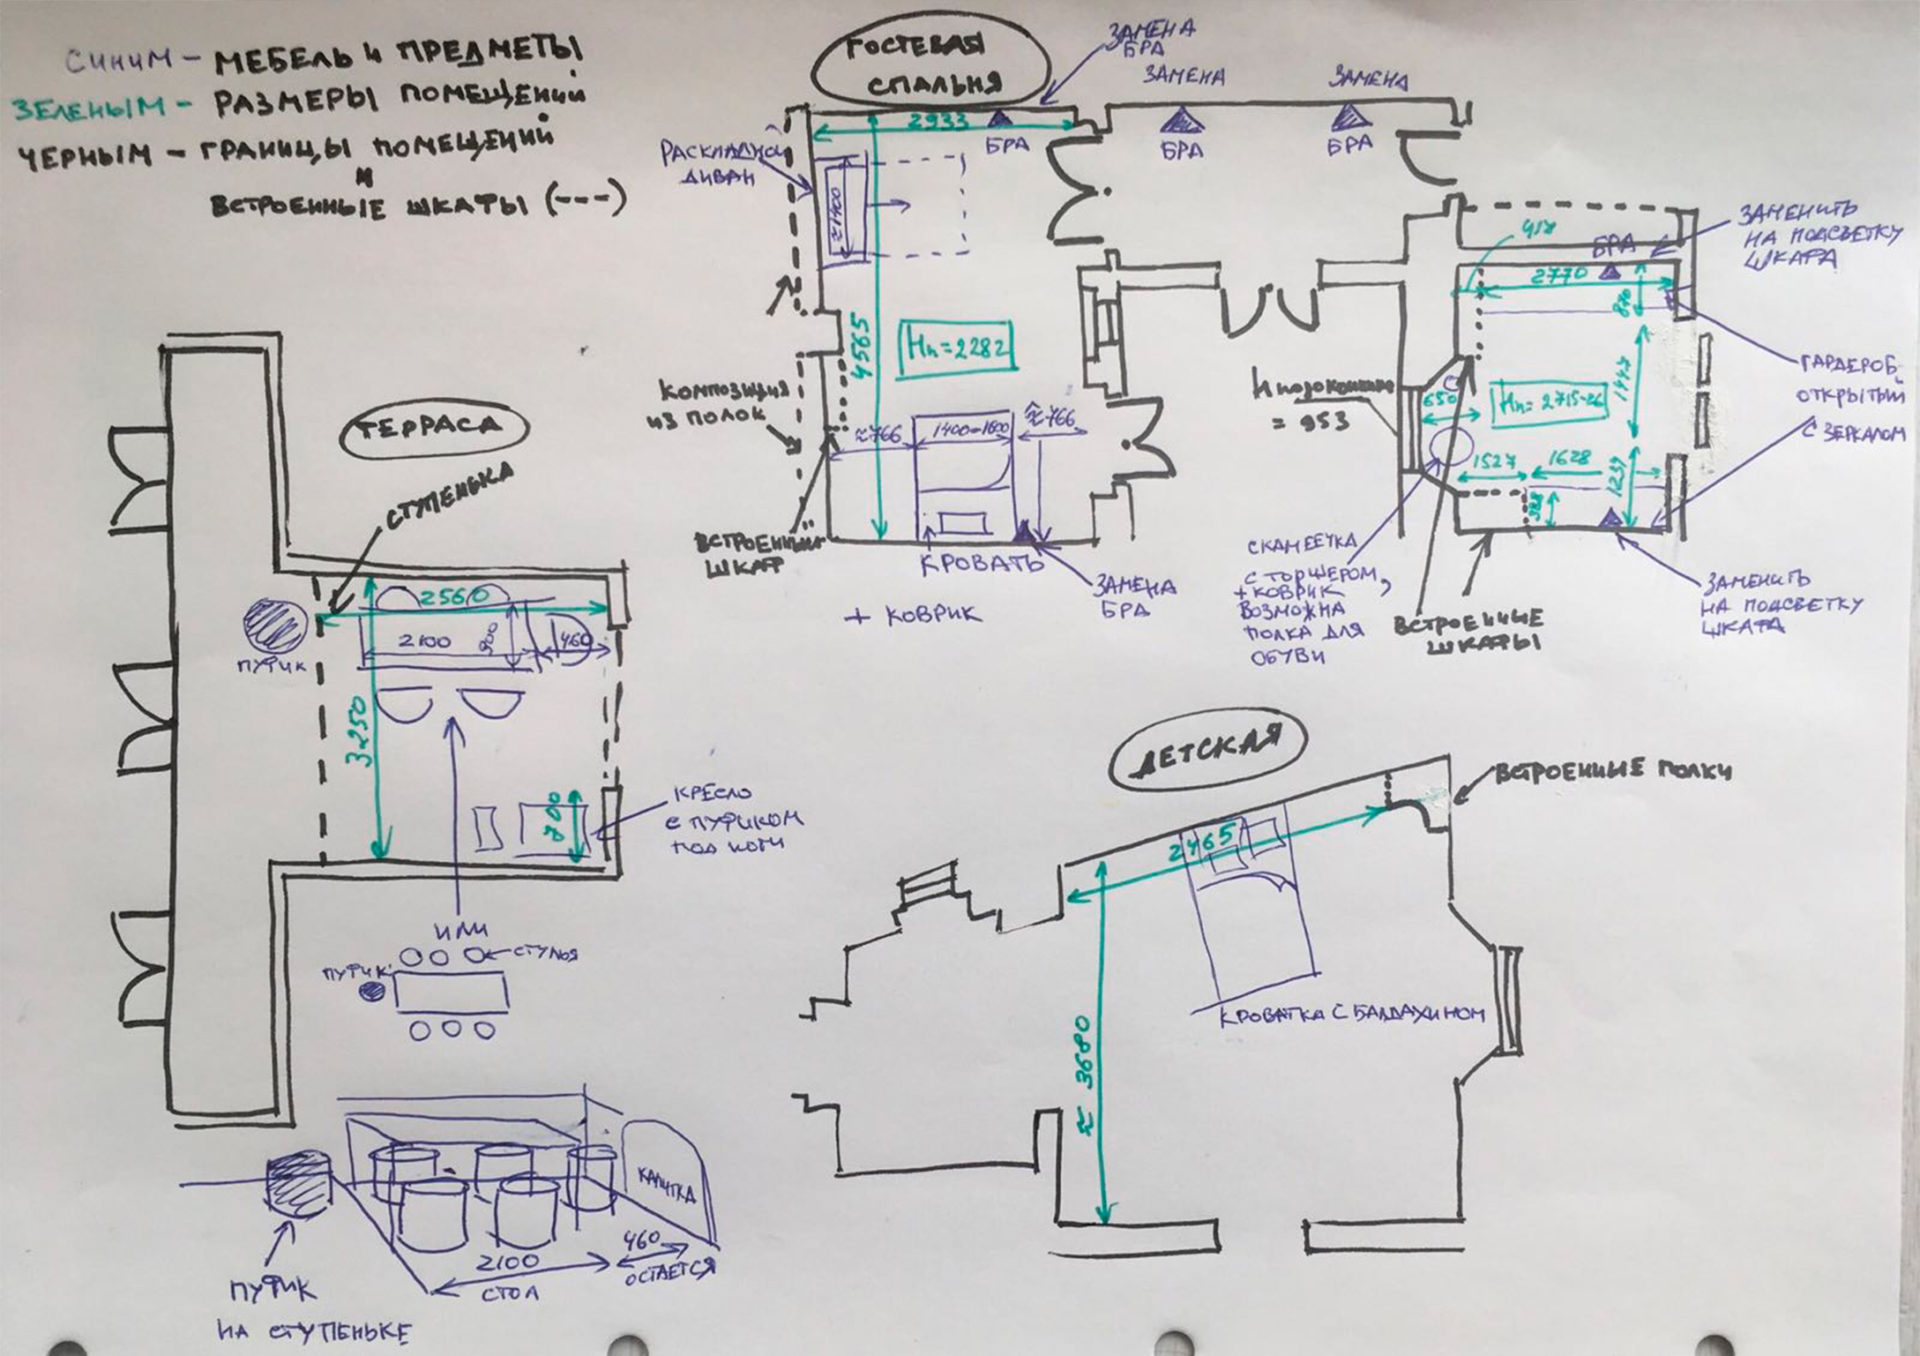 СИНИМ – МЕБЕЛЬ И ПРЕДМЕТЫ
ЗЕЛЕНЫМ – РАЗМЕРЫ ПОМЕЩЕНИЙ
ЧЕРНЫМ – ГРАНИЦЫ ПОМЕЩЕНИЙ
И
ВСТРОЕННЫЕ ШКАФЫ (---)
ГОСТЕВАЯ
СПАЛЬНЯ
ЗАМЕНА
БРА
ЗАМЕНА
ЗАМЕНА
2933
БРА
БРА
БРА
ДИВАН
≈1400
4565
Hп=2282
КОМПОЗИЦИЯ
ИЗ ПОЛОК
≈766
1400-1600
≈766
ВСТРОЕННЫЙ
ШКАФ
КРОВАТЬ
+ КОВРИК
ЗАМЕНА
БРА
ЗАМЕНИТЬ
НА ПОДСВЕТКУ
ШКАФА
БРА
2770
870
1447
Hп=2715-26
650
= 953
1527
1628
1239
ГАРДЕРОБ
ОТКРЫТЫЙ
С ЗЕРКАЛОМ
СКАМЕЕЧКА
С ТОРШЕРОМ,
+ КОВРИК
ВОЗМОЖНА
ПОЛКА ДЛЯ
ОБУВИ
ВСТРОЕННЫЕ
ШКАФЫ
ЗАМЕНИТЬ
НА ПОДСВЕТКУ
ШКАФА
ТЕРРАСА
СТУПЕНЬКА
ПУФИК
2560
2100
900
460
3250
700
КРЕСЛО
С ПУФИКОМ
ПОД НОГИ
ИЛИ
СТУЛЬЯ
ПУФИК
КАЛИТКА
2100
СТОЛ
460
ОСТАЕТСЯ
ПУФИК
НА СТУПЕНЬКЕ
ДЕТСКАЯ
ВСТРОЕННЫЕ ПОЛКИ
2465
≈ 3680
КРОВАТКА С БАЛДАХИНОМ